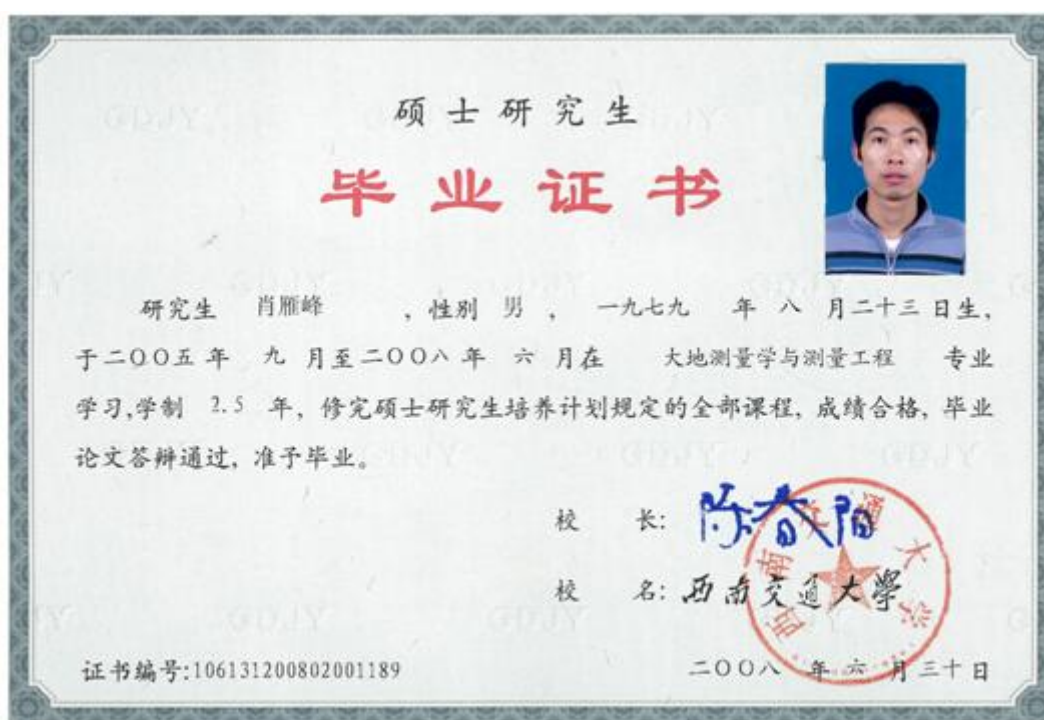 硕士研究生
毕业证书
研究生 肖雁峰 ，性别 男 ， 一九七九 年 八 月二十三日生，
于二〇〇五年 九 月至二〇〇八年 六 月在 大地测量学与测量工程 专业
学习,学制 2.5 年，修完硕士研究生培养计划规定的全部课程，成绩合格，毕业
论文答辩通过，准予毕业。
校 长: 陈春阳
校 名: 西南交通大學
西南交通大学
证书编号:106131200802001189
二〇〇八 年 六 月三十日